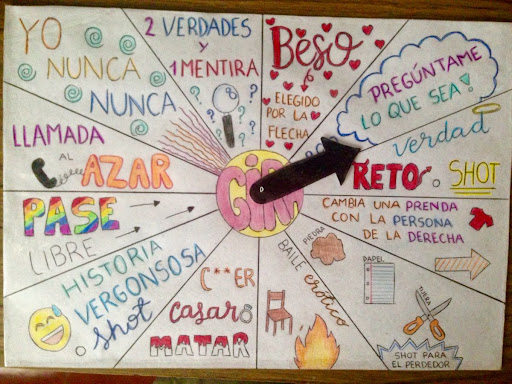 YO
NUNCA
NUNCA
2 VERDADES
Y
1 MENTIRA
BESO
ELEGIDO
POR LA
FLECHA
PREGÚNTAME
LO QUE SEA!
Verdad
RETO
o SHOT
CAMBIA UNA PRENDA
CON LA PERSONA
DE LA DERECHA
PIEDRA
PAPEL
TIJERA
SHOT PARA
EL PERDEDOR
BAILE erótico
C**ER
Casar o
MATAR
HISTORIA
VERGONSOSA
o shot
PASE
LIBRE
LLAMADA
AL
AZAR
GIRA